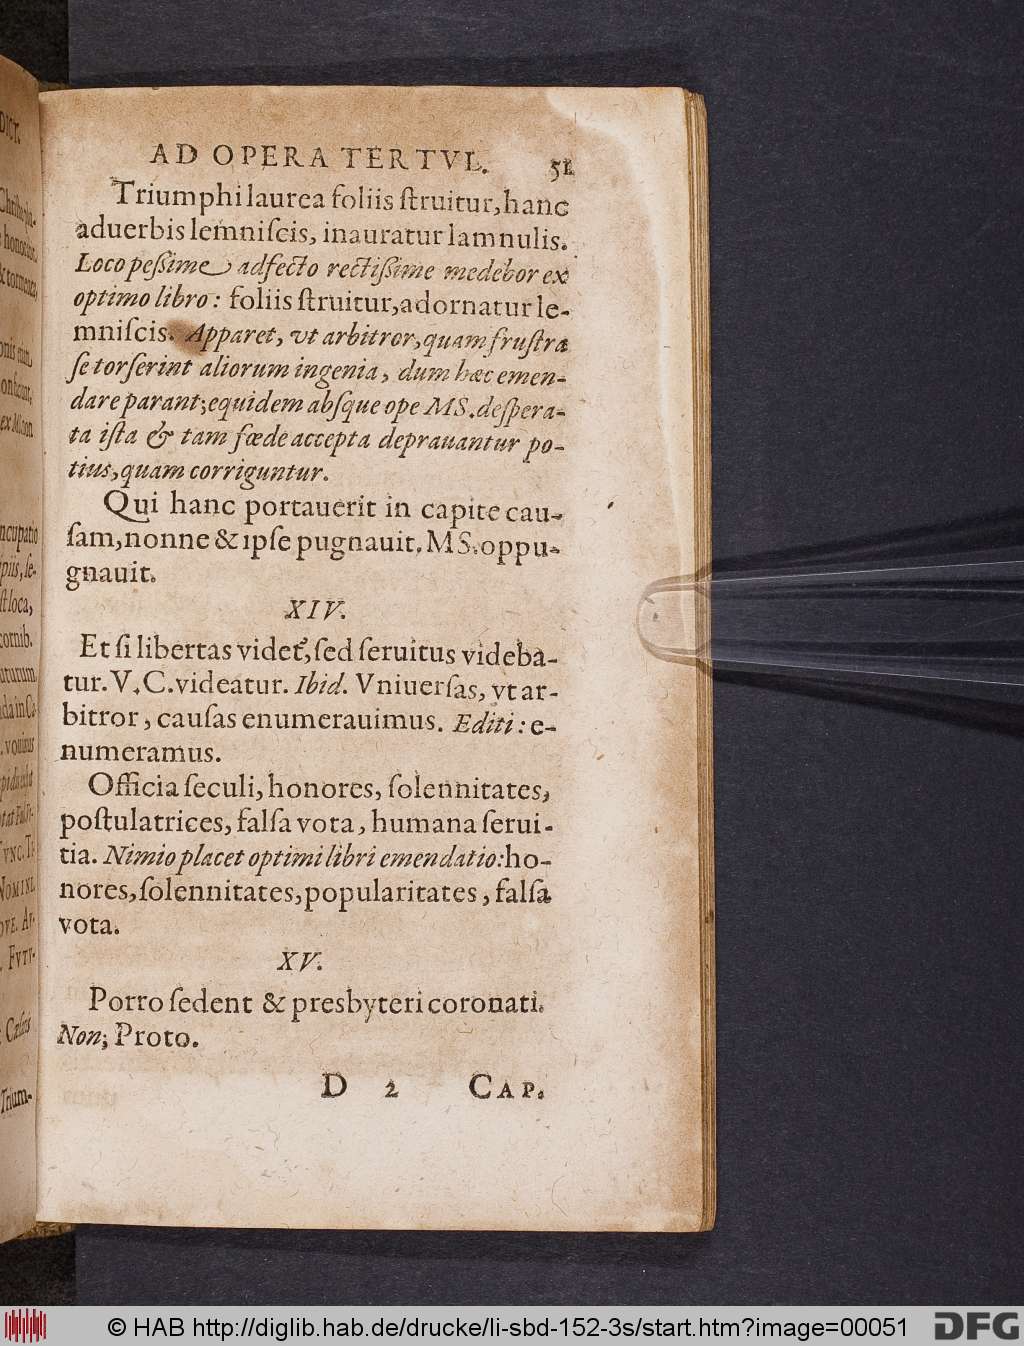 AD OPERA TERTVL. 51
Triumphi laurea foliis ſtruitur, hanc
aduerbis lemniſcis, inauratur lamnulis.
Loco peſſime adfecto rectiſſime medebor ex
optimo libro: foliis ſtruitur, adornatur le-
mniſcis. Apparet, vt arbitror, quam fruſtra
ſe torſerint aliorum ingenia, dum hæc emen-
dare parant; equidem abſque ope MS. deſpera-
ta iſta & tam fœde accepta deprauantur po-
tius, quam corriguntur.
Qui hanc portauerit in capite cau-
ſam, nonne & ipſe pugnauit. MS. oppu-
gnauit.
XIV.
Et ſi libertas videt᷑, ſed ſeruitus videba-
tur. V. C. videatur. Ibid. Vniuerſas, vt ar-
bitror, cauſas enumerauimus. Editi: e-
numeramus.
Officia ſeculi, honores, ſolennitates,
poſtulatrices, falſa vota, humana ſerui-
tia. Nimio placet optimi libri emendatio: ho-
nores, ſolennitates, popularitates, falſa
vota.
XV.
Porro ſedent & presbyteri coronati.
Non; Proto.
D 2 CAP.
DICT.
honoſ
& tormenta,
onſ
ex M
ncupatio
ipiis, ſe-
ſt loca,
cornib.
uturum
da in Ca
. vouimus
NOMINE
OVE. AV-
FVTV-
Cæſos
Trium-
© HAB http://diglib.hab.de/drucke/li-sbd-152-3s/start.htm?image=00051
DFG